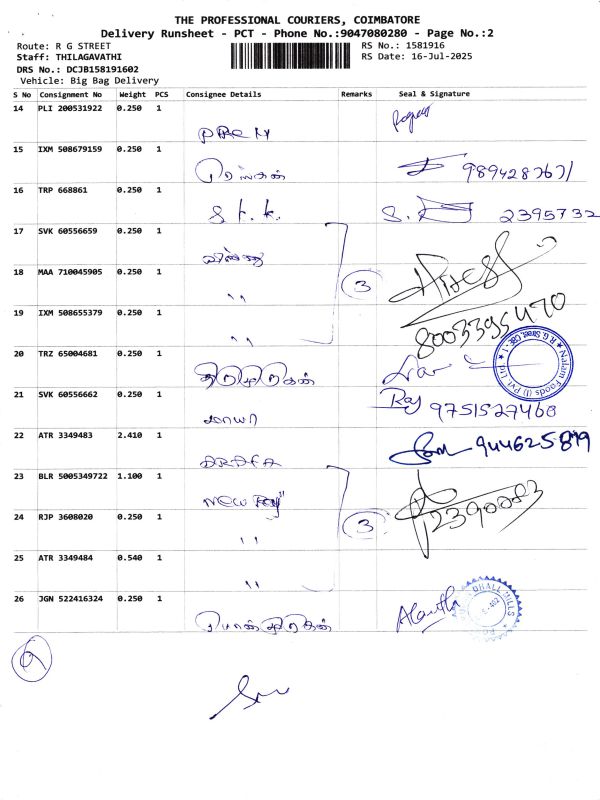 THE PROFESSIONAL COURIERS, COIMBATORE
Delivery Runsheet - PCT - Phone No.:9047080280 - Page No.:2
Route: R G STREET
RS No.: 1581916
Staff: THILAGAVATHI
RS Date: 16-Jul-2025
DRS No.: DCJB158191602
Vehicle: Big Bag Delivery
S No Consignment No Weight PCS Consignee Details Remarks Seal & Signature
14 PLI 200531922 0.250 1
15 IXM 508679159 0.250 1
16 TRP 668861 0.250 1
S.t.k. 2395732
17 SVK 60556659 0.250 1
18 MAA 710045905 0.250 1
" 3
19 IXM 508655379 0.250 1
" 8003395470
20 TRZ 65004681 0.250 1
Nalam Foods (I) Pvt. Ltd. ★ R.G. Street, CBE-1 ★
21 SVK 60556662 0.250 1
Raj 9751527460
மாயா
22 ATR 3349483 2.410 1
23 BLR 5005349722 1.100 1
NEW
24 RJP 3608020 0.250 1
" 3 2390083
25 ATR 3349484 0.540 1
"
26 JGN 522416324 0.250 1
DHALL MILLS
பொன்முருகன்